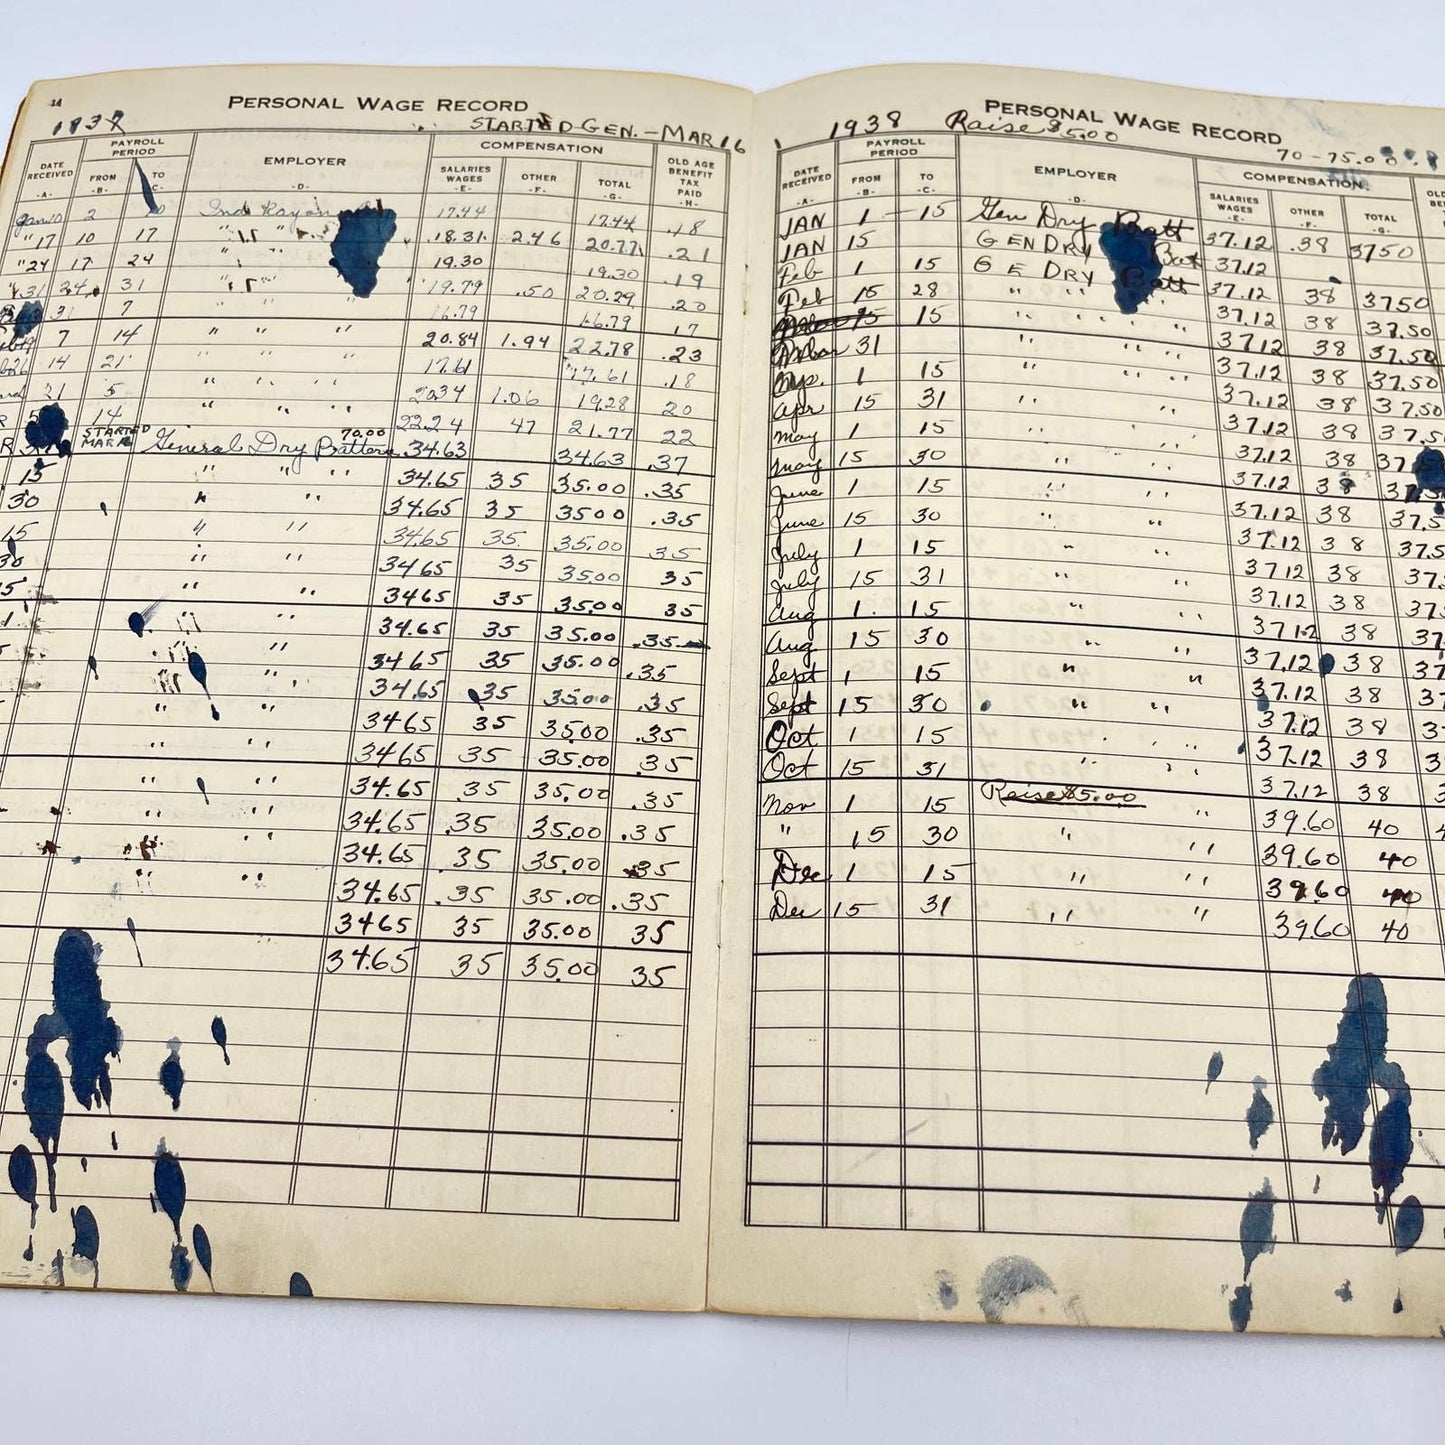 14
PERSONAL WAGE RECORD
STARTED-GEN.-MAR 16
DATE RECEIVED PAYROLL PERIOD EMPLOYER COMPENSATION OLD AGE BENEFIT TAX PAID
FROM TO SALARIES WAGES OTHER TOTAL
-A.- -B.- -C.- -D.- -E.- -F.- -G.- -H.-
Jan 10 2 Ind Rayon 17.44 17.44 .18
"17 10 17 " " 18.31 2.46 20.77 .21
"24 17 24 " " 19.30 19.30 .19
"31 24 31 " " 19.79 .50 20.29 .20
31 7 " " 16.79 16.79 17
7 14 " " " 20.84 1.94 22.78 .23
14 21 " " " 17.61 17.61 .18
21 5 " " " 1.06 19.28 20
14 " " " 22.24 47 21.77 22
STARTED MAR General Dry Battery 70.00 34.63 34.63 .37
15 " " " 34.65 35 35.00 .35
30 " " 34.65 35 35.00 .35
15 " " 34.65 35 35.00 35
30 " " 34.65 35 35.00 35
" " 34.65 35 35.00 35
" " 34.65 35 35.00 .35
" " 34.65 35 35.00 .35
" " 34.65 35 35.00 .35
" " 34.65 35 35.00 .35
" " 34.65 35 35.00 .35
" " 34.65 .35 35.00 .35
" " 34.65 .35 35.00 .35
" " 34.65 .35 35.00 35
" " 34.65 .35 35.00 .35
34.65 35 35.00 35
34.65 35 35.00 35
1938 Raise $5.00
PERSONAL WAGE RECORD
70-75.00
DATE RECEIVED PAYROLL PERIOD EMPLOYER COMPENSATION
FROM TO SALARIES WAGES OTHER TOTAL
-A.- -B.- -C.- -D.- -E.- -F.- -G.-
JAN 1 - 15 Gen Dry Batt 37.12 .38 37.50
JAN 15 GEN DRY Bat 37.12
Feb 1 15 G E DRY Batt 37.12 38 37.50
Feb 15 28 " " " 37.12 38 37.50
15 " " " " 37.12 38 37.50
31 " " " 37.12 38 37.50
1 15 " " 37.12 38 37.50
Apr 15 31 " " 37.12 38 37.5
May 1 15 " " 37.12 38 37
May 15 30 " " 37.12 38 37.5
June 1 15 " " 37.12 38 37.5
June 15 30 " " 37.12 38 37.5
July 1 15 " " 37.12 38 37.
July 15 31 " " 37.12 38 37.
Aug 1 15 " " 37.12 38 37
Aug 15 30 " " 37.12 38 37
Sept 1 15 " " 37.12 38 37
Sept 15 30 " " 37.12 38 3
Oct 1 15 " " 37.12 38 3
Oct 15 31 " " 37.12 38 3
Nov 1 15 Raise $5.00 " 39.60 40 4
" 15 30 " " 39.60 40
Dec 1 15 " " 39.60 40
Dec 15 31 " " 39.60 40